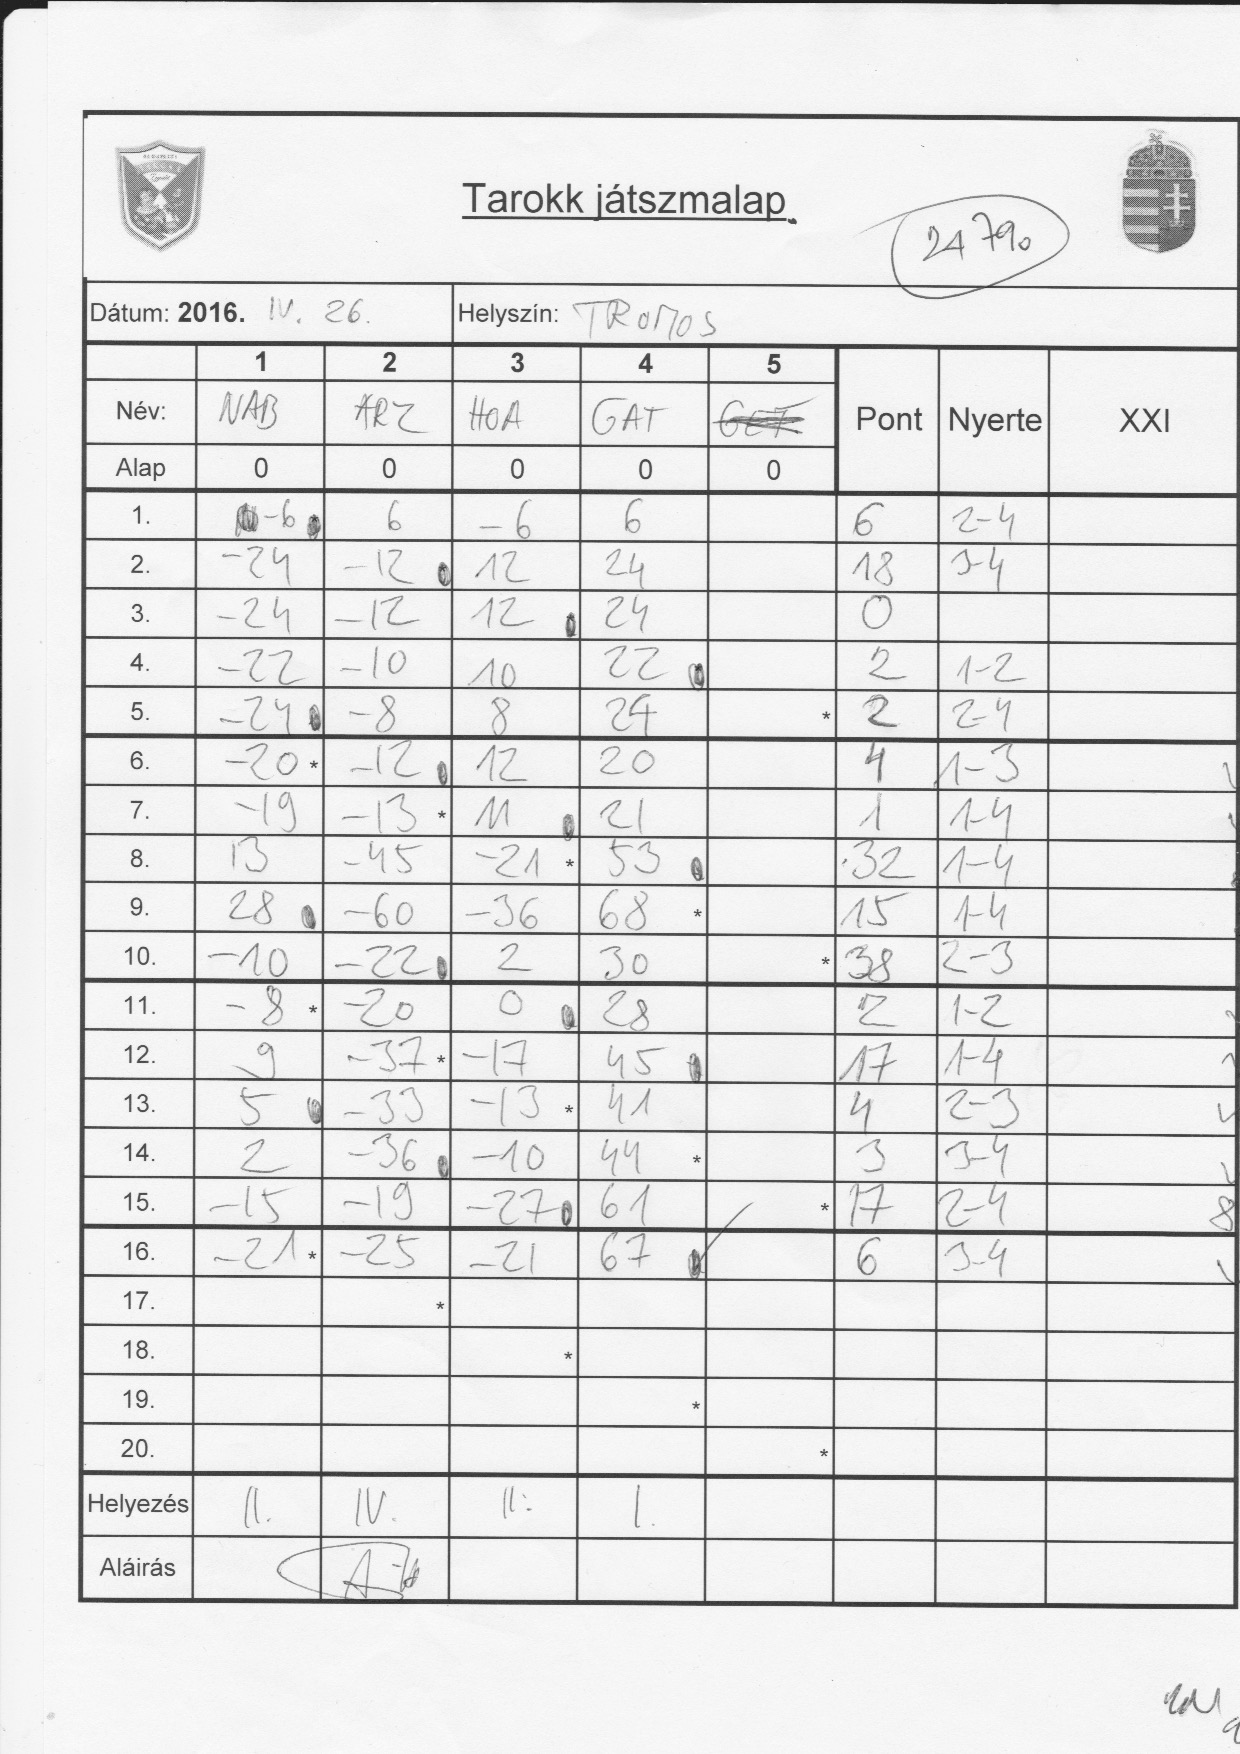 Tarokk játszmalap
24790
Dátum: 2016. IV. 26. Helyszín: TROMOS
1 2 3 4 5
Név: NAB ARZ HOA GAT Pont Nyerte XXI
Alap 0 0 0 0 0
1. -6 6 -6 6 6 2-4
2. -24 -12 12 24 18 3-4
3. -24 -12 12 24 0
4. -22 -10 10 22 2 1-2
5. -24 -8 8 24 * 2 2-4
6. -20 * -12 12 20 4 1-3
7. -19 -13 * 11 21 1 1-4
8. 13 -45 -21 * 53 32 1-4
9. 28 -60 -36 68 * 15 1-4
10. -10 -22 2 30 * 38 2-3
11. -8 * -20 0 28 2 1-2
12. 9 -37 * -17 45 17 1-4
13. 5 -33 -13 * 41 4 2-3
14. 2 -36 -10 44 * 3 3-4
15. -15 -19 -27 61 * 17 2-4 8
16. -21 * -25 -21 67 6 3-4
17. *
18. *
19. *
20. *
Helyezés II. IV. II. I.
Aláirás